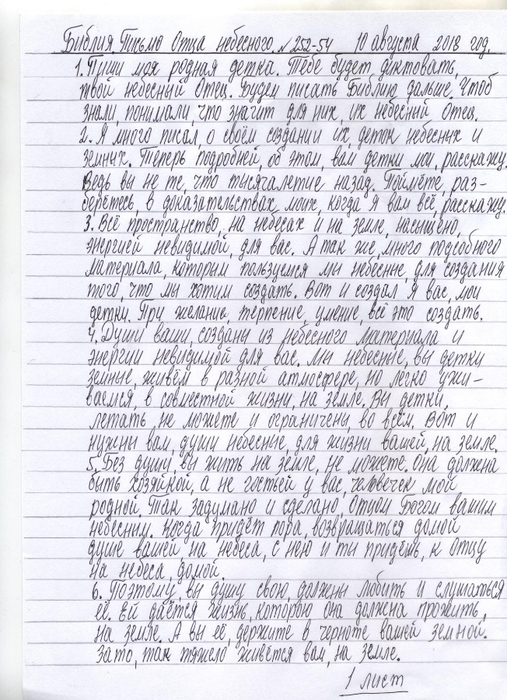 Библия. Письмо Отца небесного. № 252-54 10 августа 2018 год.
1. Пиши моя родная детка. Тебе будет диктовать,
твой небесный Отец. Будем писать Библию дальше. Чтоб
знали, понимали, что значит для них, их небесный Отец.
2. Я много писал, о своём создании их, деток небесных и
земных. Теперь подробней, об этом, вам детки мои, расскажу.
Ведь вы не те, что тысячелетие назад. Поймёте, раз-
берётесь, в доказательствах моих, когда Я вам всё, расскажу.
3. Всё пространство, на небесах и на земле, насыщено,
энергией невидимой, для вас. А так же, много подсобного
материала, которым пользуемся мы небесные, для создания
того, что мы хотим создать. Вот и создал Я вас, мои
детки. При желание, терпение, умение, всё это создать.
4. Души ваши, созданы из небесного материала и
энергии невидимой для вас. Мы небесные, вы детки
земные, живём в разной атмосфере, но легко ужи-
ваемся, в совместной жизни, на земле. Вы детки,
летать не можете и ограничены, во всём. Вот и
нужны вам, души небесные, для жизни вашей, на земле.
5. Без души, вы жить на земле, не можете. Она должна
быть хозяйкой, а не гостьей у вас, человечек мой
родной. Так задумано и сделано, Отцом Богом вашим
небесным. Когда придёт пора, возвращаться домой
душе вашей на небеса, с нею и ты придёшь, к Отцу
на небеса, домой.
6. Поэтому, вы душу свою, должны любить и слушаться
её. Ей даётся жизнь, которою она должна прожить,
на земле. А вы её, держите в черноте вашей земной.
Зато, так тяжело живётся вам, на земле.
1 лист